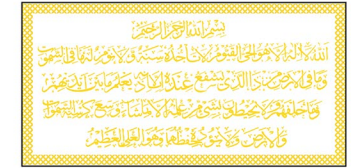 بسم الله الرحمن الرحيم
الله لا اله الا هو الحي القيوم لا تاخذه سنة ولا نوم له ما في السموات
وما في الارض من ذا الذي يشفع عنده الا باذنه يعلم ما بين ايديهم
وما خلفهم ولا يحيطون بشئ من علمه الا بما شاء وسع كرسيه السموات
والارض ولا يئوده حفظهما وهو العلي العظيم